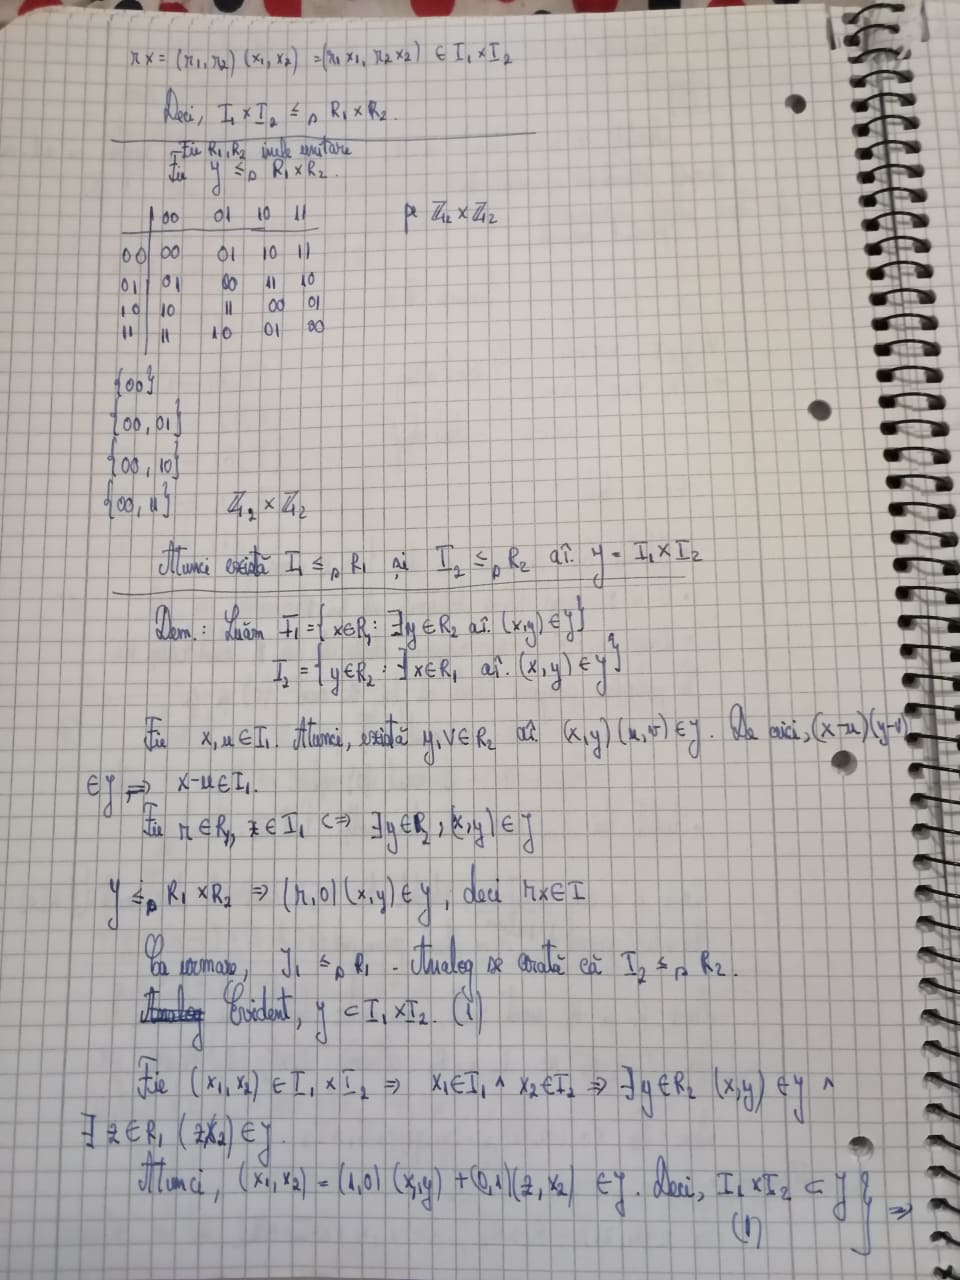 rx = (r₁, r₂) (x₁, x₂) = (r₁x₁, r₂x₂) ∈ I₁×I₂
Deci, I₁ × I₂ ≤ₚ R₁ × R₂.
Fie R₁, R₂ inele unitare
Fie Y ≤ₚ R₁ × R₂.
| 00 01 10 11 pe ℤ₂ × ℤ₂
00 | 00 01 10 11
01 | 01 00 11 10
10 | 10 11 00 01
11 | 11 10 01 00
{00}
{00, 01}
{00, 10}
{00, 11} ℤ₂ × ℤ₂
Atunci există I₁ ≤ₚ R₁ și I₂ ≤ₚ R₂ aî. Y = I₁ × I₂
Dem.: Luăm I₁ = {x∈R₁ : ∃y∈R₂ aî. (x,y) ∈ Y}
I₂ = {y∈R₂ : ∃x∈R₁ aî. (x,y) ∈ Y}
Fie x, u ∈ I₁. Atunci, există y, v ∈ R₂ aî. (x,y) (u,v) ∈ Y. De aici, (x-u)(y-v)
∈ Y ⇒ x-u ∈ I₁.
Fie r ∈ R₁, x ∈ I₁ ⇔ ∃y∈R₂, (x,y) ∈ Y
Y ≤ₚ R₁ × R₂ ⇒ (r,0) (x,y) ∈ Y, deci rx ∈ I
Ca urmare, I₁ ≤ₚ R₁. Analog se arată că I₂ ≤ₚ R₂.
Analog Evident, Y ⊂ I₁ × I₂. (i)
Fie (x₁, x₂) ∈ I₁ × I₂ ⇒ x₁∈I₁ ∧ x₂∈I₂ ⇒ ∃y∈R₂ (x,y) ∈ Y ∧
∃ z ∈ R₁ (z,x₂) ∈ Y.
Atunci, (x₁, x₂) = (1,0) (x,y) + (0,1)(z, x₂) ∈ Y. Deci, I₁ × I₂ ⊂ Y } ⇒
(1)